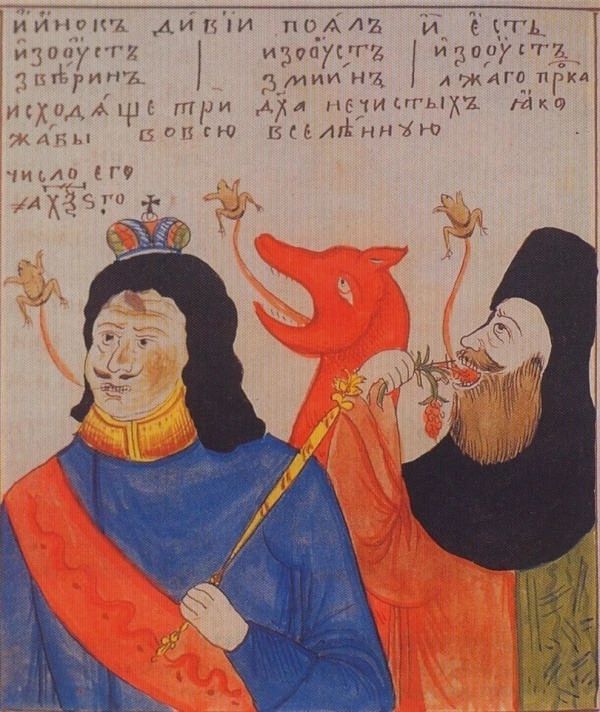 и҆ и҆нокъ ди́вїи поя́лъ и҆ є҆сть
и҆зоѹстъ | изоѹстъ | и҆зоѹстъ
звѣ́ринъ | змии́нъ | лжа́го прⷪ҇ка
исходѧ́ще три̑ дх҃а нечистыхъ ꙗ҆ко
жа́бы вовсю вселе́нную
число єго
҂ахѯѕ го